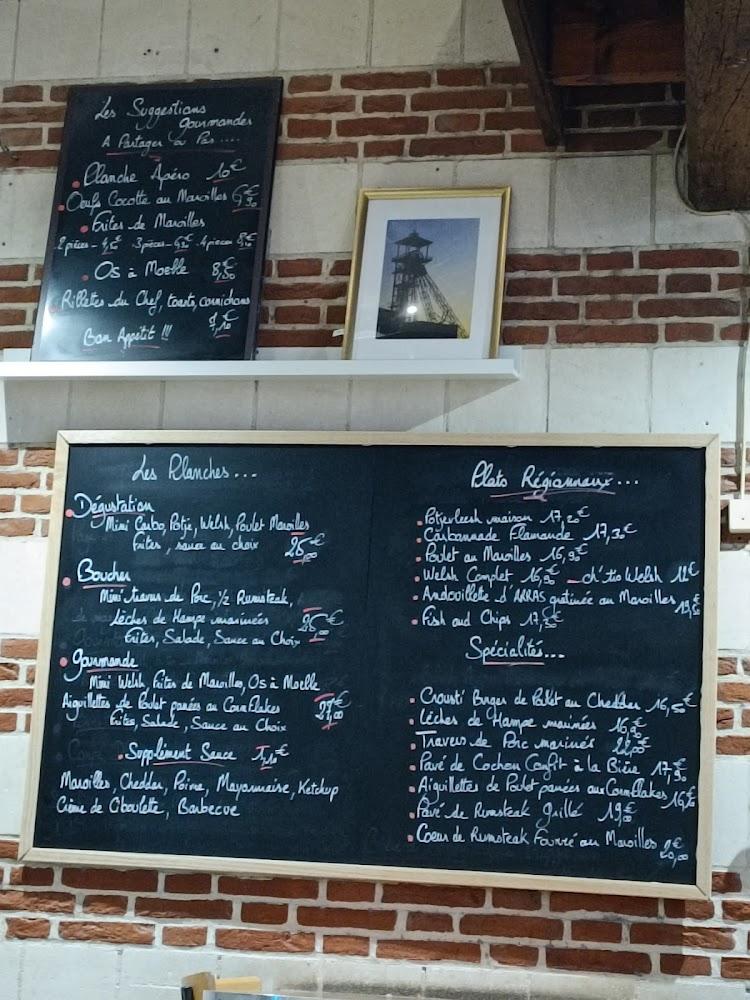 Les Suggestions
gourmandes
A Partager ou Pas....
Planche Apéro 10€
Oeufs Cocotte au Maroilles 6€90
Frites de Maroilles
2 pièces - 3 pièces - 4 pièces
Os à Moelle 8,50
Rillettes du Chef, toasts, cornichons
7,10€
Bon Appétit !!!
Les Planches...
Dégustation
Mini Carbo, Potje, Welsh, Poulet Maroilles
Frites, sauce au choix
Boucher
Mini travers de Porc, 1/2 Rumsteak,
Lèches de Hampe marinées
Frites, Salade, Sauce au Choix
Gourmande
Mini Welsh, Frites de Maroilles, Os à Moelle
Aiguillettes de Poulet panées au Cornflakes
Frites, Salade, Sauce au Choix
Supplément Sauce 1,10€
Maroilles, Chedder, Poivre, Mayonnaise, Ketchup
Crème de Ciboulette, Barbecue
Plats Régionnaux...
Potjevleesh maison 17,20€
Carbonnade Flamande 17,30€
Poulet au Maroilles 16,90€
Welsh Complet 16,90€ - ch'tio Welsh 12€
Andouillette d'ARRAS gratinée au Maroilles
Fish and Chips 17,30€
Spécialités...
Crousti Burger de Poulet au Chedder 16,50€
Lèches de Hampe marinées 16,90€
Travers de Porc marinés
Pavé de Cochon Confit à la Bière 17,90€
Aiguillettes de Poulet panées aux Cornflakes
Pavé de Rumsteak grillé 19€
Coeur de Rumsteak Fourré au Maroilles